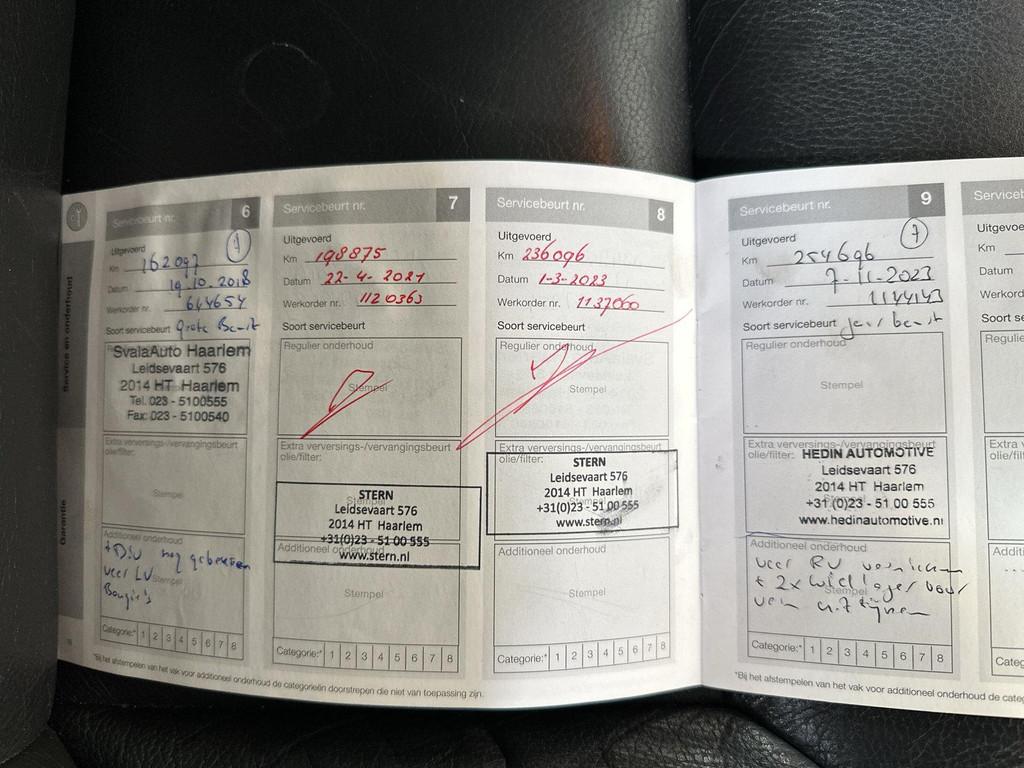 Service en onderhoud
Garantie
Servicebeurt nr. 6
1
Uitgevoerd
Km 162097
Datum 19.10.2018
Werkorder nr. 644654
Soort servicebeurt Grote Beurt
SvalaAuto Haarlem
Leidsevaart 576
2014 HT Haarlem
Tel. 023 - 5100555
Fax: 023 - 5100540
Extra verversings-/vervangingsbeurt
olie/filter:
Stempel
Additioneel onderhoud
veer LV
Stempel
Bougie's
Categorie:* 1 2 3 4 5 6 7 8
Servicebeurt nr. 7
Uitgevoerd
Km 198875
Datum 22-4-2021
Werkorder nr. 1120363
Soort servicebeurt
Regulier onderhoud
Stempel
Extra verversings-/vervangingsbeurt
olie/filter:
Stempel
STERN
Leidsevaart 576
2014 HT Haarlem
+31(0)23 - 51 00 555
www.stern.nl
Additioneel onderhoud
Stempel
Categorie:* 1 2 3 4 5 6 7 8
Servicebeurt nr. 8
Uitgevoerd
Km 236096
Datum 1-3-2023
Werkorder nr. 1137060
Soort servicebeurt
Regulier onderhoud
Stempel
Extra verversings-/vervangingsbeurt
olie/filter:
STERN
Leidsevaart 576
2014 HT Haarlem
+31(0)23 - 51 00 555
www.stern.nl
Additioneel onderhoud
Stempel
Categorie:* 1 2 3 4 5 6 7 8
*Bij het afstempelen van het vak voor additioneel onderhoud de categorieën doorstrepen die niet van toepassing zijn.
Servicebeurt nr. 9
7
Uitgevoerd
Km 254696
Datum 7-11-2023
Werkorder nr. 1144143
Soort servicebeurt beurt
Regulier onderhoud
Stempel
Extra verversings-/vervangingsbeurt
olie/filter: HEDIN AUTOMOTIVE
Leidsevaart 576
2014 HT Haarlem
+31 (0)23 - 51 00 555
www.hedinautomotive.nl
Additioneel onderhoud
veer RV
Stempel
+ 2x wiellager voor
Categorie:* 1 2 3 4 5 6 7 8
*Bij het afstempelen van het vak voor additioneel onderhoud de
Servicebeurt
Uitgevoerd
Km
Datum
Soort
Extra
Categ